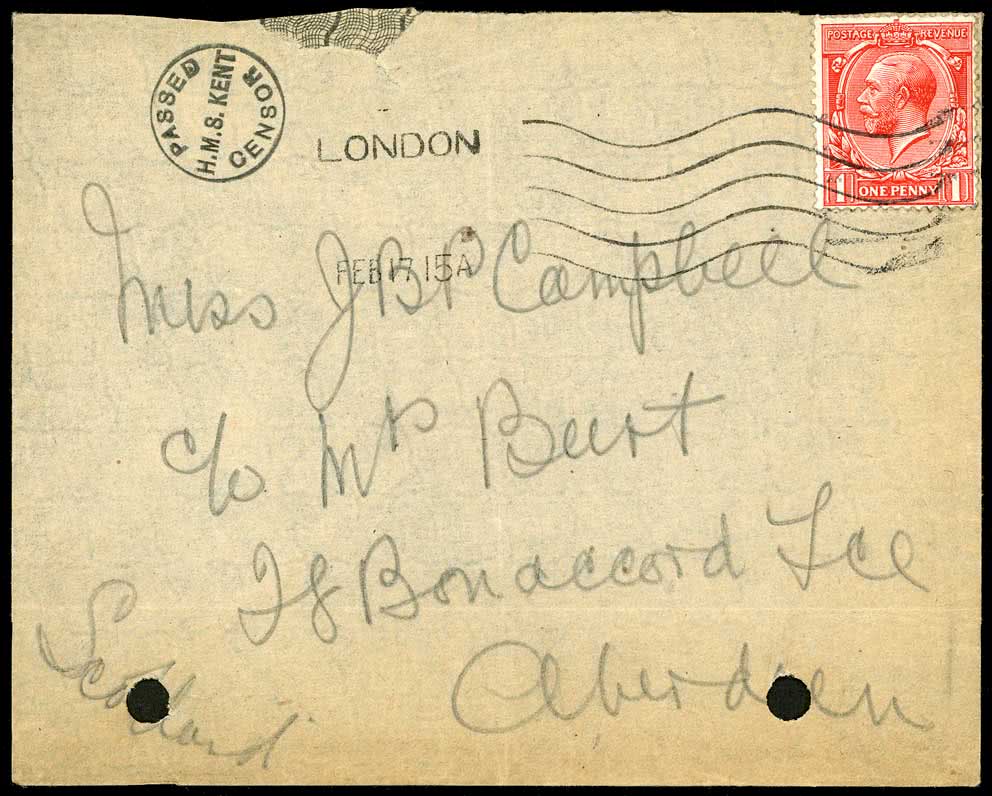 PASSED
H.M.S. KENT
CENSOR
LONDON
FEB 17 15A
POSTAGE REVENUE
1 ONE PENNY 1
Miss J B P Campbell
c/o Mrs Burt
28 Bonaccord Tce
Aberdeen
Scotland